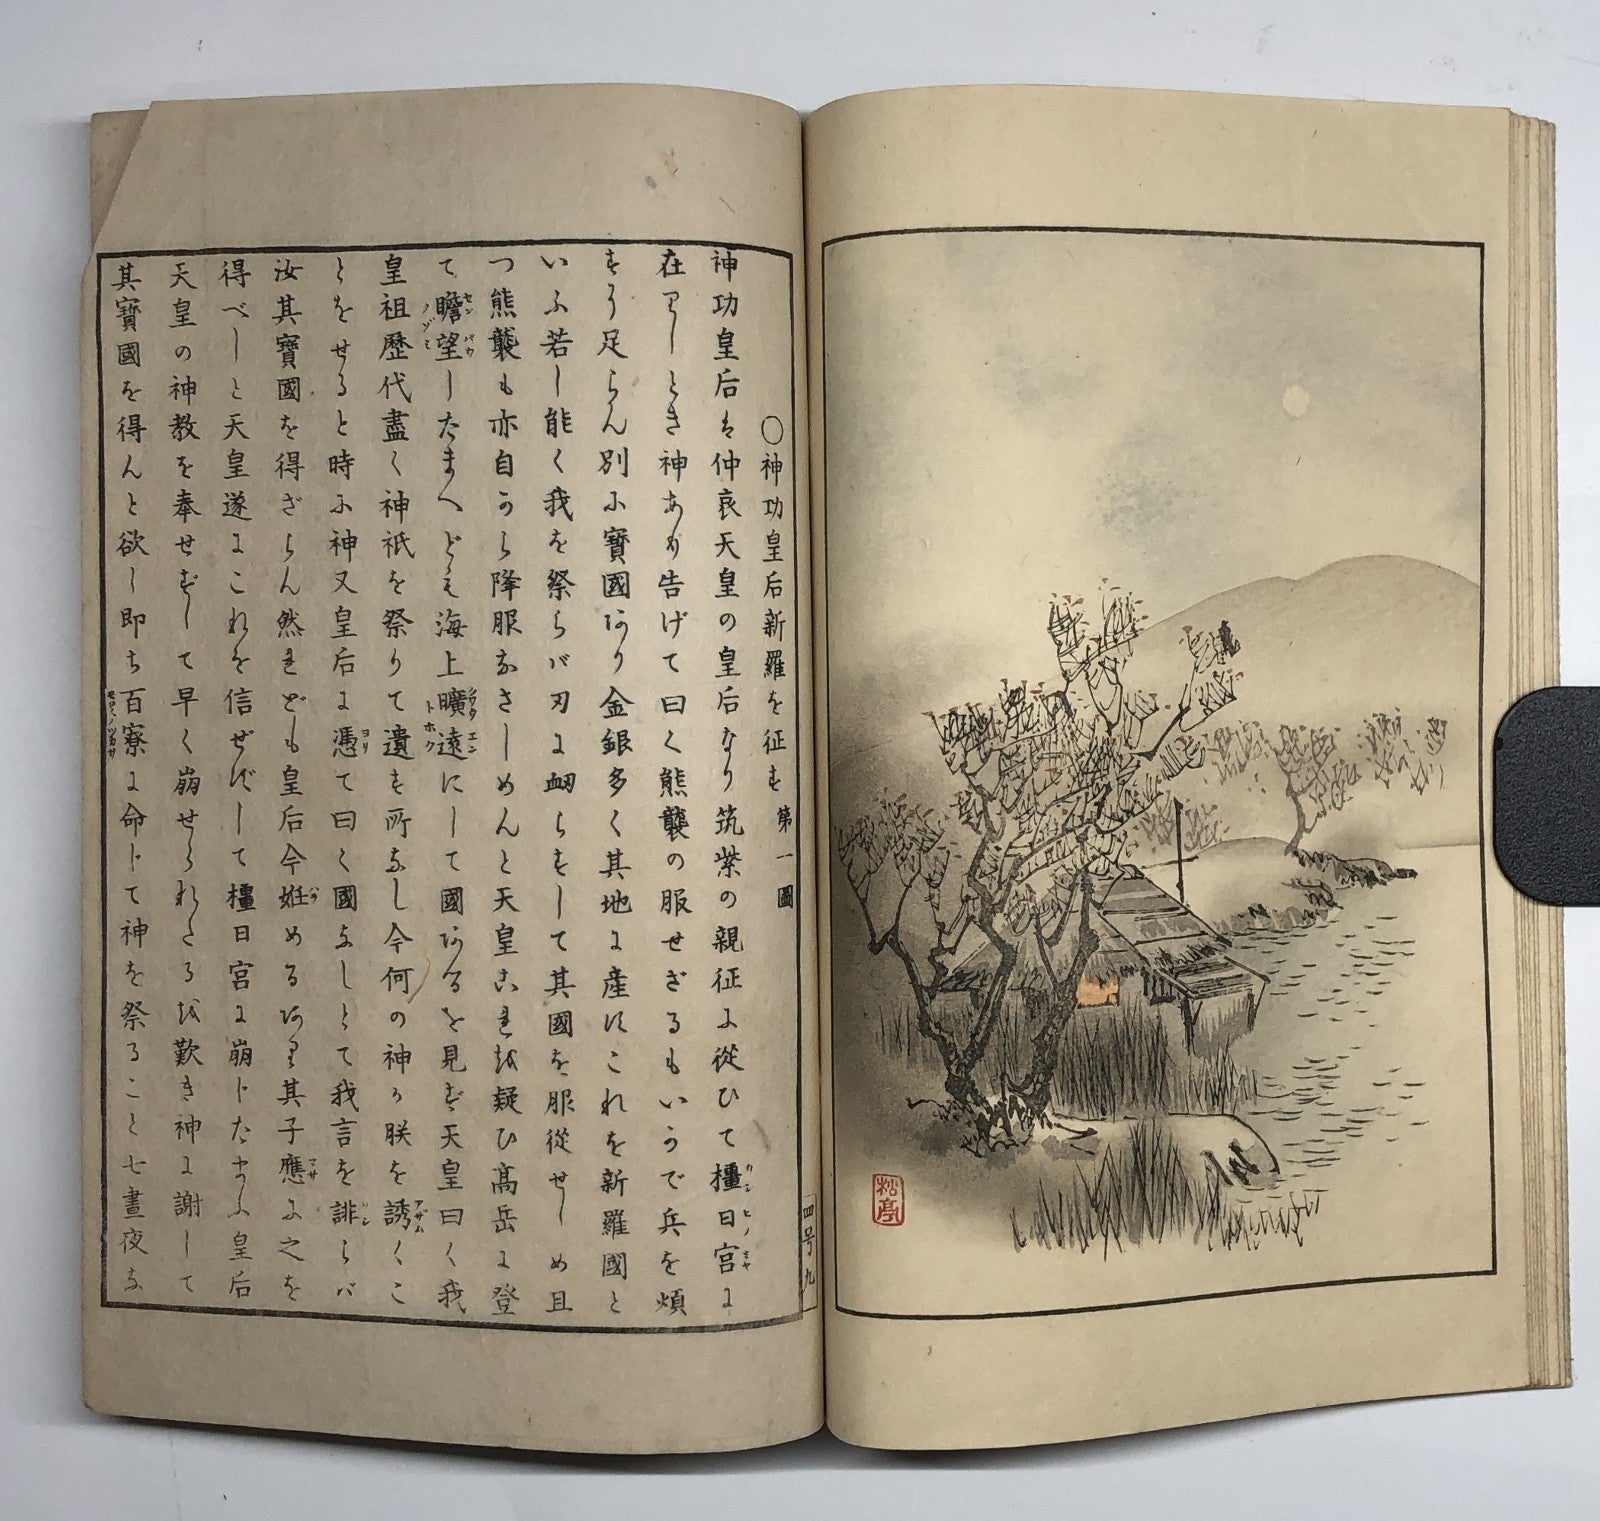 松亭
〇神功皇后新羅を征す 第一圖
神功皇后は仲哀天皇の皇后なり筑紫の親征に從ひて橿日宮に
在りしとき神あり告げて曰く熊襲の服せざるもいかで兵を煩
すに足らん別に寶國あり金銀多く其地に産すこれを新羅國と
いふ若し能く我を祭らバ刃に衂らずして其國を服從せしめ且
つ熊襲も亦自から降服なさしめんと天皇これを疑ひ高岳に登
て瞻望したまへども海上曠遠にして國あるを見ず天皇曰く我
皇祖歷代盡く神祇を祭りて遺す所なし今何の神か朕を誘くこ
とをせると時に神又皇后に憑て曰く國なしとて我言を誹らバ
汝其寶國を得ざらん然れども皇后今姙めるあり其子應に之を
得べしと天皇遂にこれを信ぜずして橿日宮に崩じたまふ皇后
天皇の神教を奉せずして早く崩せられたるを歎き神に謝して
其寶國を得んと欲し即ち百寮に命じて神を祭ること七晝夜な
四号九